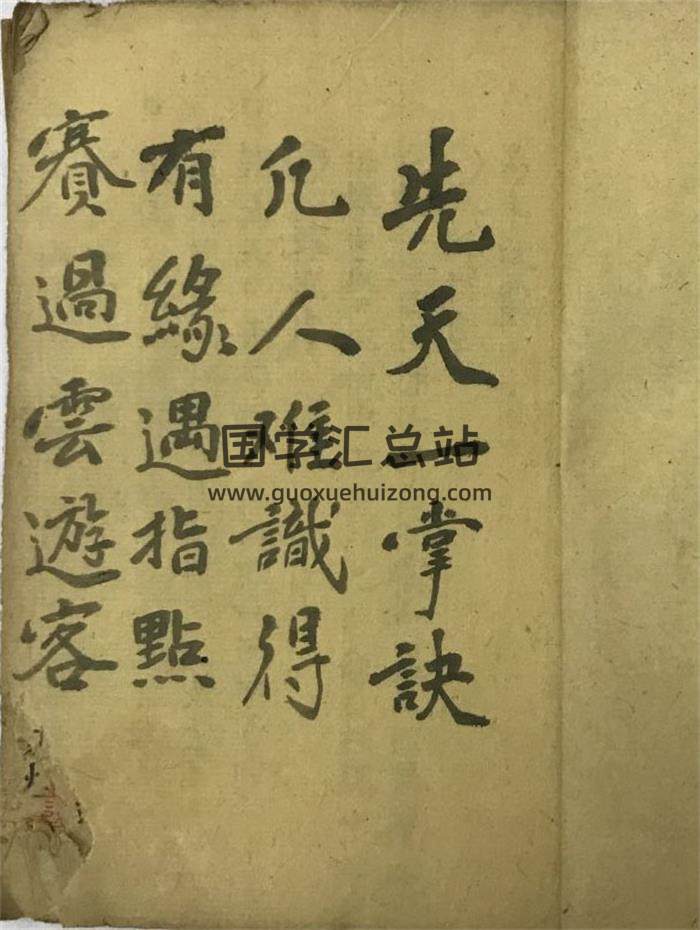 先天一掌訣
凡人难識得
有緣遇指點
賽過雲遊客
国学汇总站
www.guoxuehuizong.com